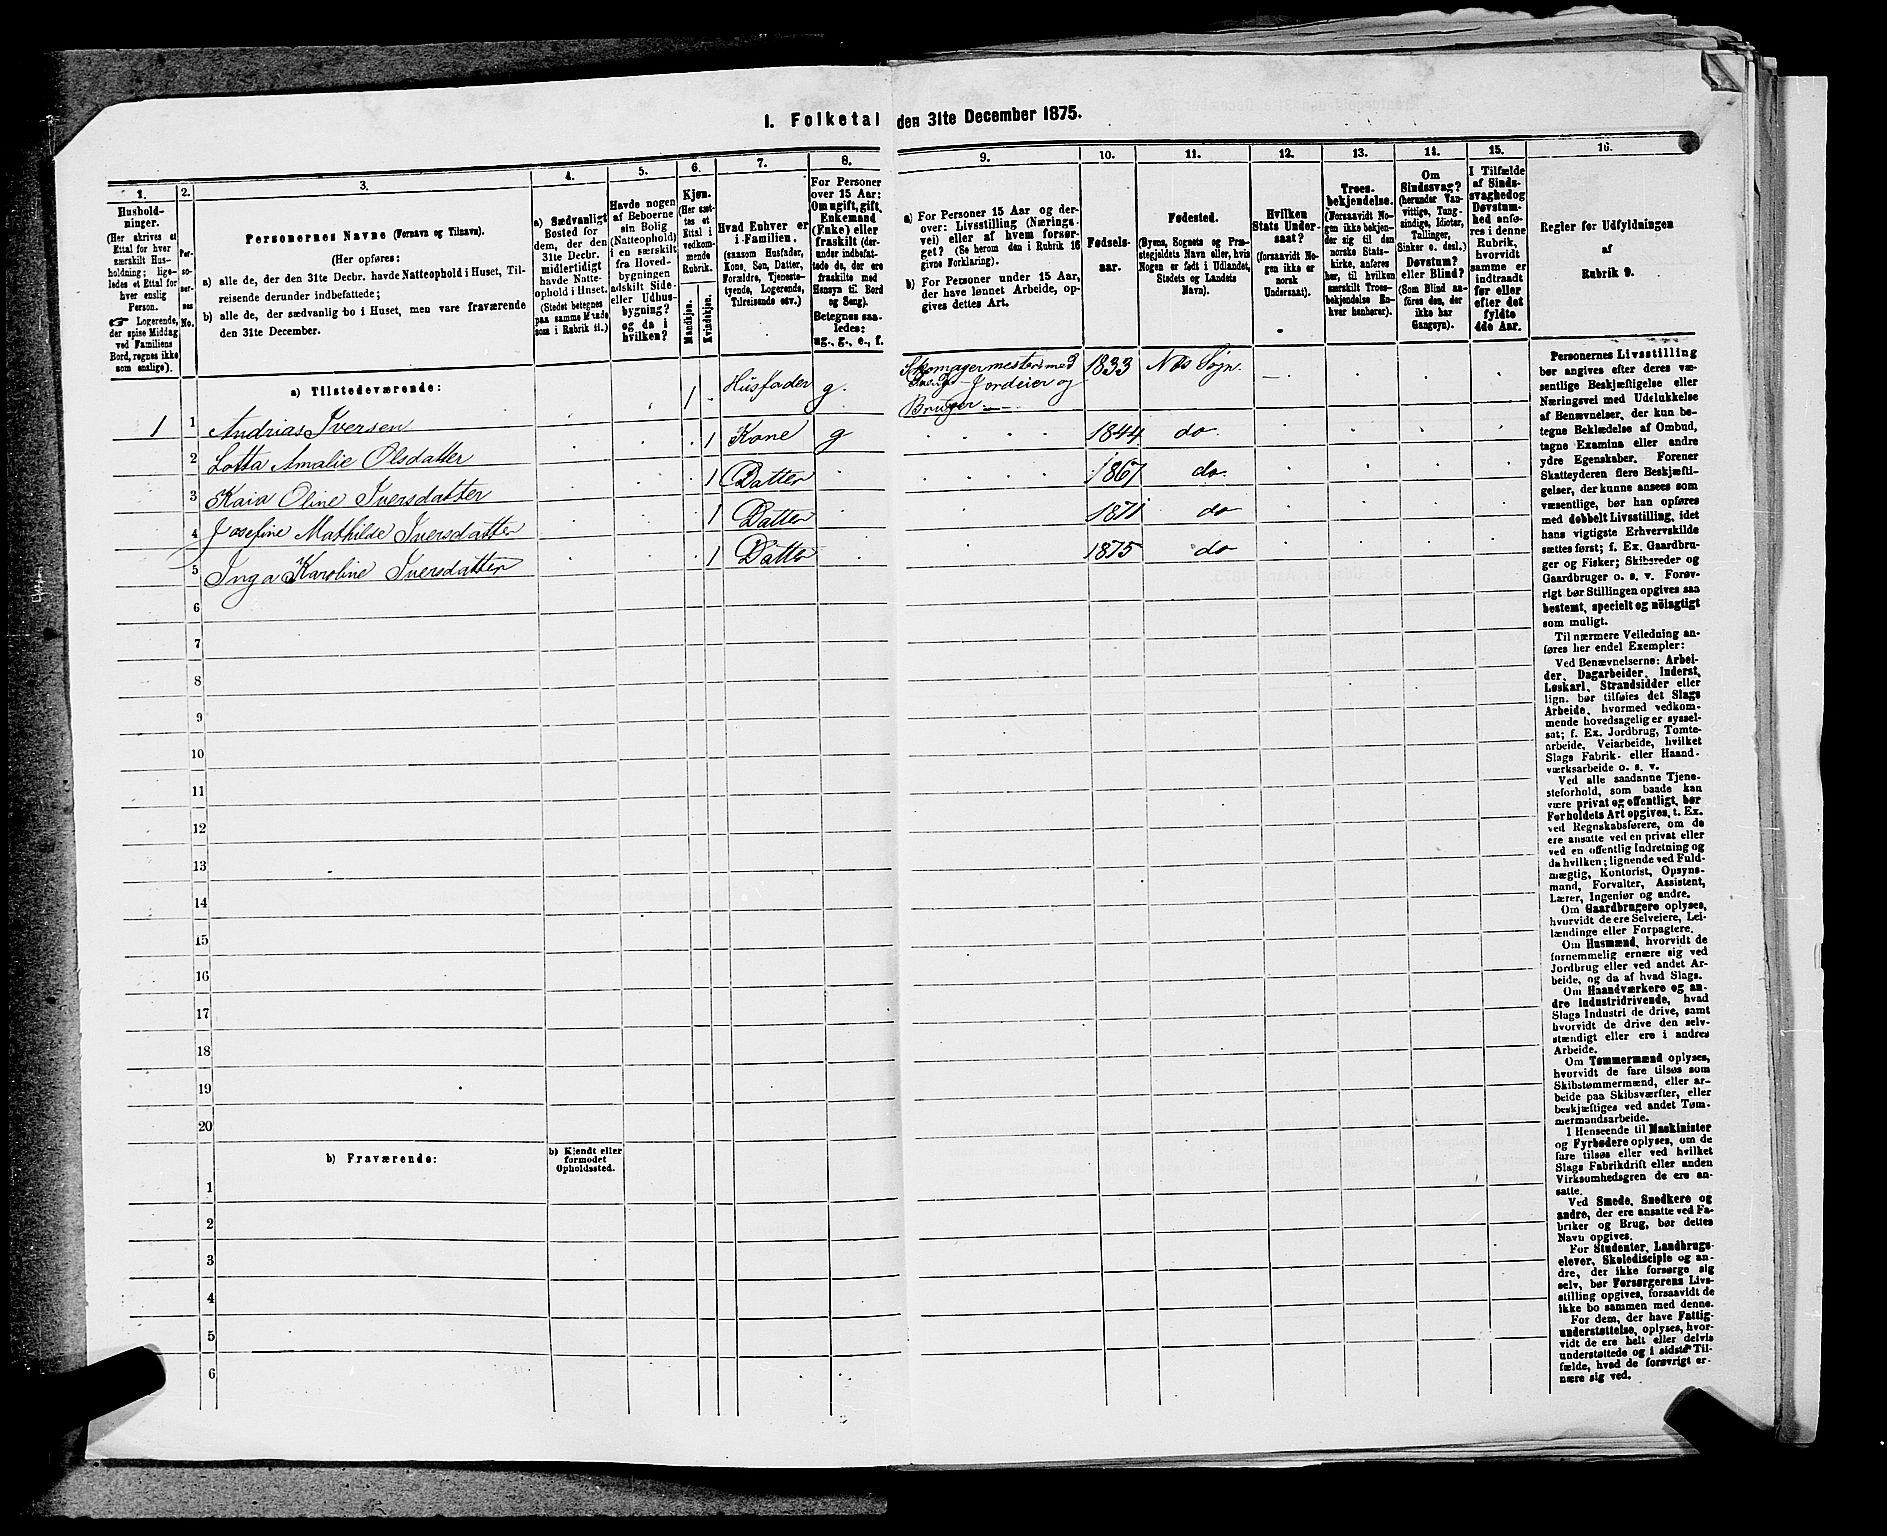 I. Folketal den 31te December 1875.
1.
Hushold-
ninger.
(Her skrives et
Ettal for hver
særskilt Hus-
holdning; lige-
ledes et Ettal for
hver enslig
Person.
Logerende,
der spise Middag
ved Familiens
Bord, regnes ikke
som enslige).
2.
Per-
so-
ner-
nes
No.
3.
Personernes Navne (Fornavn og Tilnavn).
(Her opføres:
a) alle de, der den 31te Decbr. havde Natteophold i Huset, Til-
reisende derunder indbefattede;
b) alle de, der sædvanlig bo i Huset, men vare fraværende
den 31te December.
4.
a) Sædvanligt
Bosted for
dem, der den
31te Decbr.
midlertidigt
havde Natte-
ophold i Huset.
(Stedet betegnes
paa samme Maade
som i Rubrik 11.)
5.
Havde nogen
af Beboerne
sin Bolig
(Natteophold)
i en særskilt
fra Hoved-
bygningen
adskilt Side-
eller Udhus-
bygning?
og da i
hvilken?
6.
Kjøn.
(Her sæt-
tes et
Ettal i
vedkom-
mende
Rubrik.
Mandkjøn.
Kvindekjøn.
7.
Hvad Enhver er
i Familien.
(saasom Husfader,
Kone, Søn, Datter,
Forældre, Tjeneste-
tyende, Logerende,
Tilreisende osv.)
8.
For Personer
over 15 Aar:
Om ugift, gift,
Enkemand
(Enke) eller
fraskilt (der-
under indbefat-
tede de, der ere
fraskilte med
Hensyn til Bord
og Seng).
Betegnes saa-
ledes:
ug., g., e., f.
9.
a) For Personer 15 Aar og der-
over: Livsstilling (Nærings-
vei) eller af hvem forsør-
get? (Se herom den i Rubrik 16
givne Forklaring).
b) For Personer under 15 Aar,
der have lønnet Arbeide, op-
gives dettes Art.
10.
Fødsels-
aar.
11.
Fødested.
(Byens, Sognets og Præ-
stegjeldets Navn eller, hvis
Nogen er født i Udlandet,
Stedets og Landets
Navn).
12.
Hvilken
Stats Under-
saat?
(forsaavidt No-
gen ikke er
norsk
Undersaat).
13.
Troes-
bekjendelse.
(Forsaavidt No-
gen ikke bekjen-
der sig til den
norske Stats-
kirke, anføres
her, til hvilken
særskilt Troes-
bekjendelse En-
hver henhører).
14.
Om
Sindssvag?
(herunder Van-
vittige, Tung-
sindige, Idioter,
Tullinger,
Sinker o. desl.)
Døvstum?
eller Blind?
(Som Blind an-
føres den, der
ikke har
Gangsyn).
15.
I Tilfælde
af Sinds-
svaghed og
Døvstum-
hed anfø-
res i denne
Rubrik,
hvorvidt
samme er
indtraadt
før eller
efter det
fyldte
4de Aar.
16.
Regler for Udfyldningen
af
Rubrik 9.
a) Tilstedeværende:
1 1 Andrias Iversen 1 Husfader g. Skomagermester med Jordeier og Bruger 1833 Næs Sogn
2 Lotta Amalie Olsdatter 1 Kone g 1844 do.
3 Kaia Oline Iversdatter 1 Datter 1867 do.
4 Josefine Mathilde Iversdatter 1 Datter 1871 do
5 Inga Karoline Iversdatter 1 Datter 1875 do
6
7
8
9
10
11
12
13
14
15
16
17
18
19
20
b) Fraværende:
b) Kjendt eller
formodet
Opholdssted.
1
2
3
4
5
6
Personernes Livsstilling
bør angives efter deres væ-
sentlige Beskjæftigelse eller
Næringsvei med Udelukkelse
af Benævnelser, der kun be-
tegne Beklædelse af Ombud,
tagne Examina eller andre
ydre Egenskaber. Forener
Skatteyderen flere Beskjæfti-
gelser, der kunne ansees som
væsentlige, bør han opføres
med dobbelt Livsstilling, idet
hans vigtigste Erhvervskilde
sættes først; f. Ex. Gaardbru-
ger og Fisker; Skibsreder og
Gaardbruger o. s. v. Forøv-
rigt bør Stillingen opgives saa
bestemt, specielt og nöiagtigt
som muligt.
Til nærmere Veiledning an-
føres her endel Exempler:
Ved Benævnelserne: Arbei-
der, Dagarbeider, Inderst,
Løskarl, Strandsidder eller
lign. bør tilføies det Slags
Arbeide, hvormed vedkom-
mende hovedsagelig er syssel-
sat; f. Ex. Jordbrug, Tomte-
arbeide, Veiarbeide, hvilket
Slags Fabrik- eller Haand-
værksarbeide o. s. v.
Ved alle saadanne Tjene-
steforhold, som baade kan
være privat og offentligt, bør
Forholdets Art opgives, t. Ex.
ved Regnskabsførere, om de
ere ansatte ved en privat eller
ved en offentlig Indretning og
da hvilken; lignende ved Fuld-
mægtig, Kontorist, Opsyns-
mand, Forvalter, Assistent,
Lærer, Ingeniør og andre.
Om Gaardbrugere oplyses,
hvorvidt de ere Selveiere, Lei-
lændinge eller Forpagtere.
Om Husmænd, hvorvidt de
fornemmelig ernære sig ved
Jordbrug eller ved andet Ar-
beide, og da af hvad Slags.
Om Haandværkere og an-
dre Industridrivende, hvad
Slags Industri de drive, samt
hvorvidt de drive den selv-
stændigt eller ere i andres
Arbeide.
Om Tømmermænd oplyses,
hvorvidt de fare tilsøs som
Skibstømmermænd, eller ar-
beide paa Skibsværfter, eller
beskjæftiges ved andet Tøm-
mermandsarbeide.
I Henseende til Maskinister
og Fyrbødere oplyses, om de
fare tilsøs eller ved hvilket
Slags Fabrikdrift eller anden
Virksomhedsgren de ere an-
satte.
Ved Smede, Snedkere og
andre, der ere ansatte ved Fa-
briker og Brug, bør dettes
Navn opgives.
For Studenter, Landbrugs-
elever, Skoledisciple og an-
dre, der ikke forsørge sig
selv, bør Forsørgerens Livs-
stilling opgives, forsaavidt de
ikke bo sammen med denne.
For dem, der have Fattig-
understøttelse, oplyses, hvor-
vidt de ere helt eller delvis
understøttede og i sidste Til-
fælde, hvad de forøvrigt er-
nære sig ved.